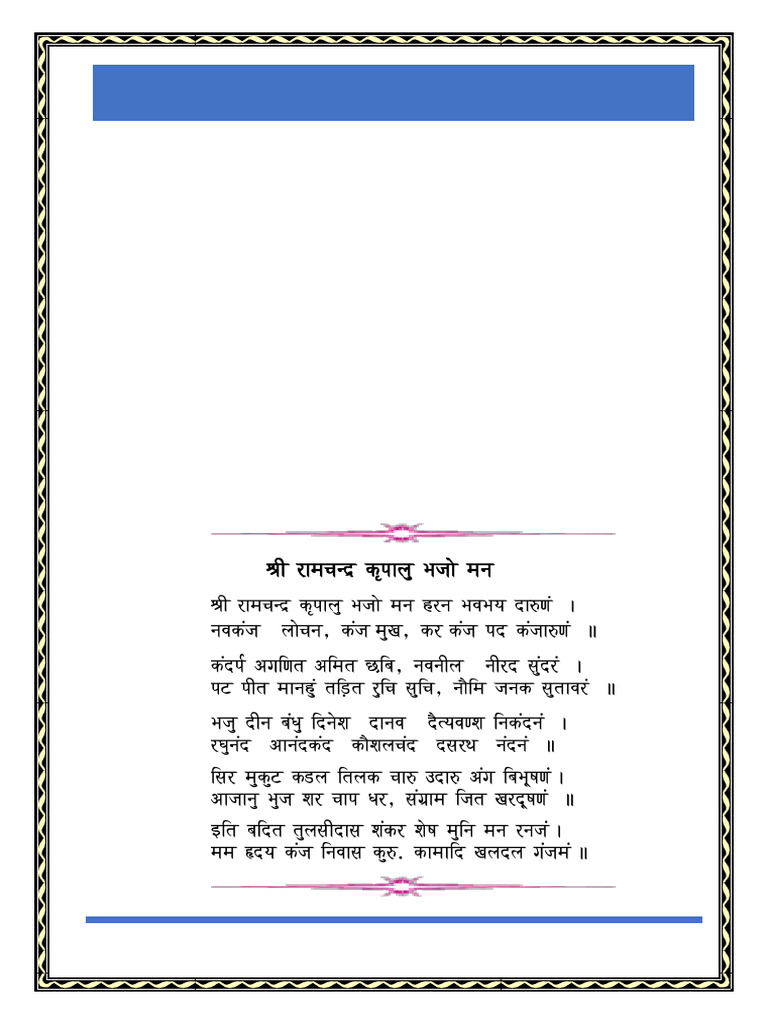 श्री रामचन्द्र कृपालु भजो मन
श्री रामचन्द्र कृपालु भजो मन हरन भवभय दारुणं ।
नवकंज लोचन, कंज मुख, कर कंज पद कंजारुणं ॥
कंदर्प अगणित अमित छबि, नवनील नीरद सुंदरं ।
पट पीत मानहुं तड़ित रुचि सुचि, नौमि जनक सुतावरं ॥
भजु दीन बंधु दिनेश दानव दैत्यवण्श निकंदनं ।
रघुनंद आनंदकंद कौशलचंद दसरथ नंदनं ॥
सिर मुकुट कडल तिलक चारु उदारु अंग बिभूषणं ।
आजानु भुज शर चाप धर, संग्राम जित खरदूषणं ॥
इति बदित तुलसीदास शंकर शेष मुनि मन रनजं ।
मम हृदय कंज निवास कुरु. कामादि खलदल गंजमं ॥